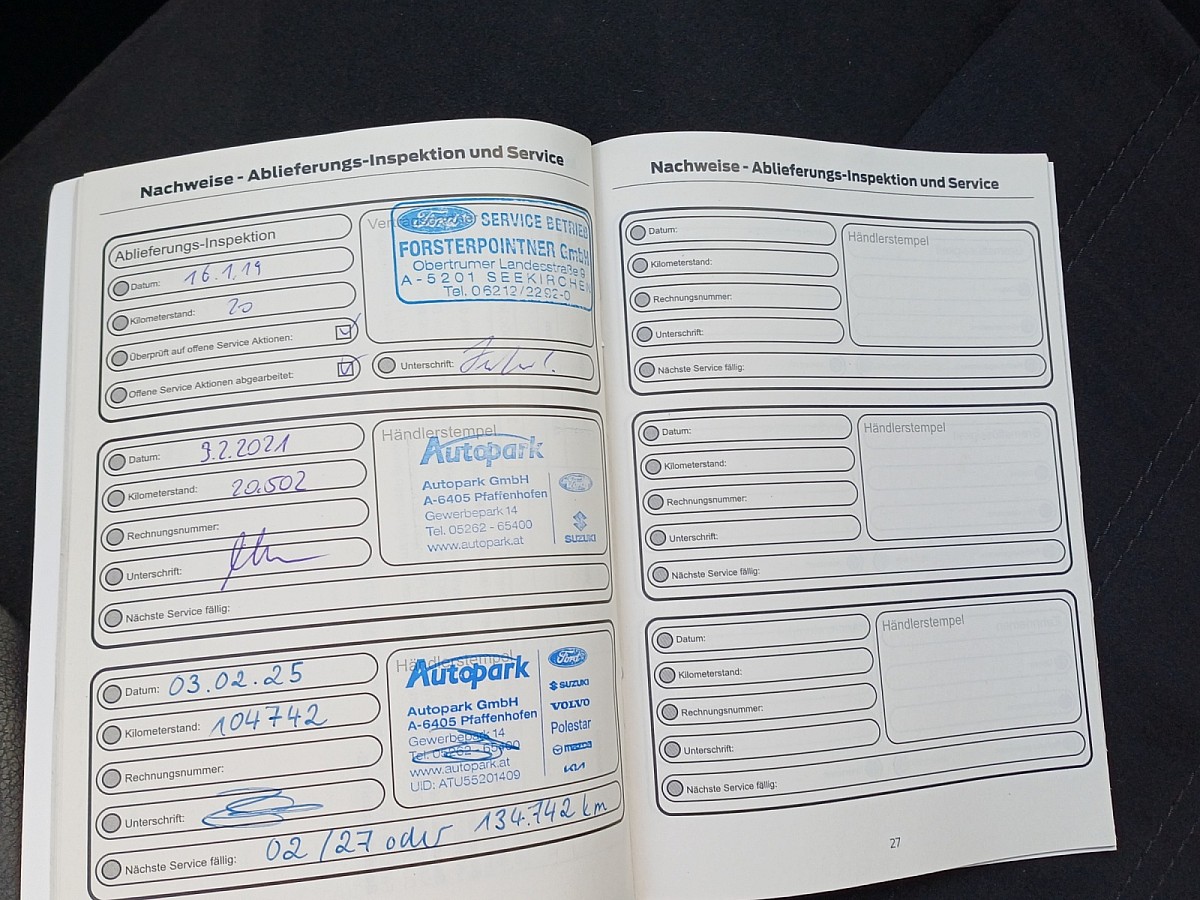 Nachweise - Ablieferungs-Inspektion und Service
Ablieferungs-Inspektion
Datum: 16.1.19
Kilometerstand: 20
Überprüft auf offene Service Aktionen:
Offene Service Aktionen abgearbeitet:
Ford SERVICE BETRIEB
FORSTERPOINTNER GmbH
Obertrumer Landesstraße 9
A - 5201 SEEKIRCHEN
Tel. 06212/2292-0
Unterschrift:
Datum: 9.2.2021
Kilometerstand: 20.502
Rechnungsnummer:
Unterschrift:
Nächste Service fällig:
Händlerstempel
Autopark
Autopark GmbH
A-6405 Pfaffenhofen
Gewerbepark 14
Tel. 05262 - 65400
www.autopark.at
Ford
SUZUKI
Datum: 03.02.25
Kilometerstand: 104742
Rechnungsnummer:
Unterschrift:
Nächste Service fällig: 02/27 oder 134.742 km
Händlerstempel
Autopark
Autopark GmbH
A-6405 Pfaffenhofen
Gewerbepark 14
Tel. 05262 - 65400
www.autopark.at
UID: ATU55201409
Ford
SUZUKI
VOLVO
Polestar
mazda
KIA
Nachweise - Ablieferungs-Inspektion und Service
Datum:
Kilometerstand:
Rechnungsnummer:
Unterschrift:
Nächste Service fällig:
Händlerstempel
Datum:
Kilometerstand:
Rechnungsnummer:
Unterschrift:
Nächste Service fällig:
Händlerstempel
Datum:
Kilometerstand:
Rechnungsnummer:
Unterschrift:
Nächste Service fällig:
Händlerstempel
27